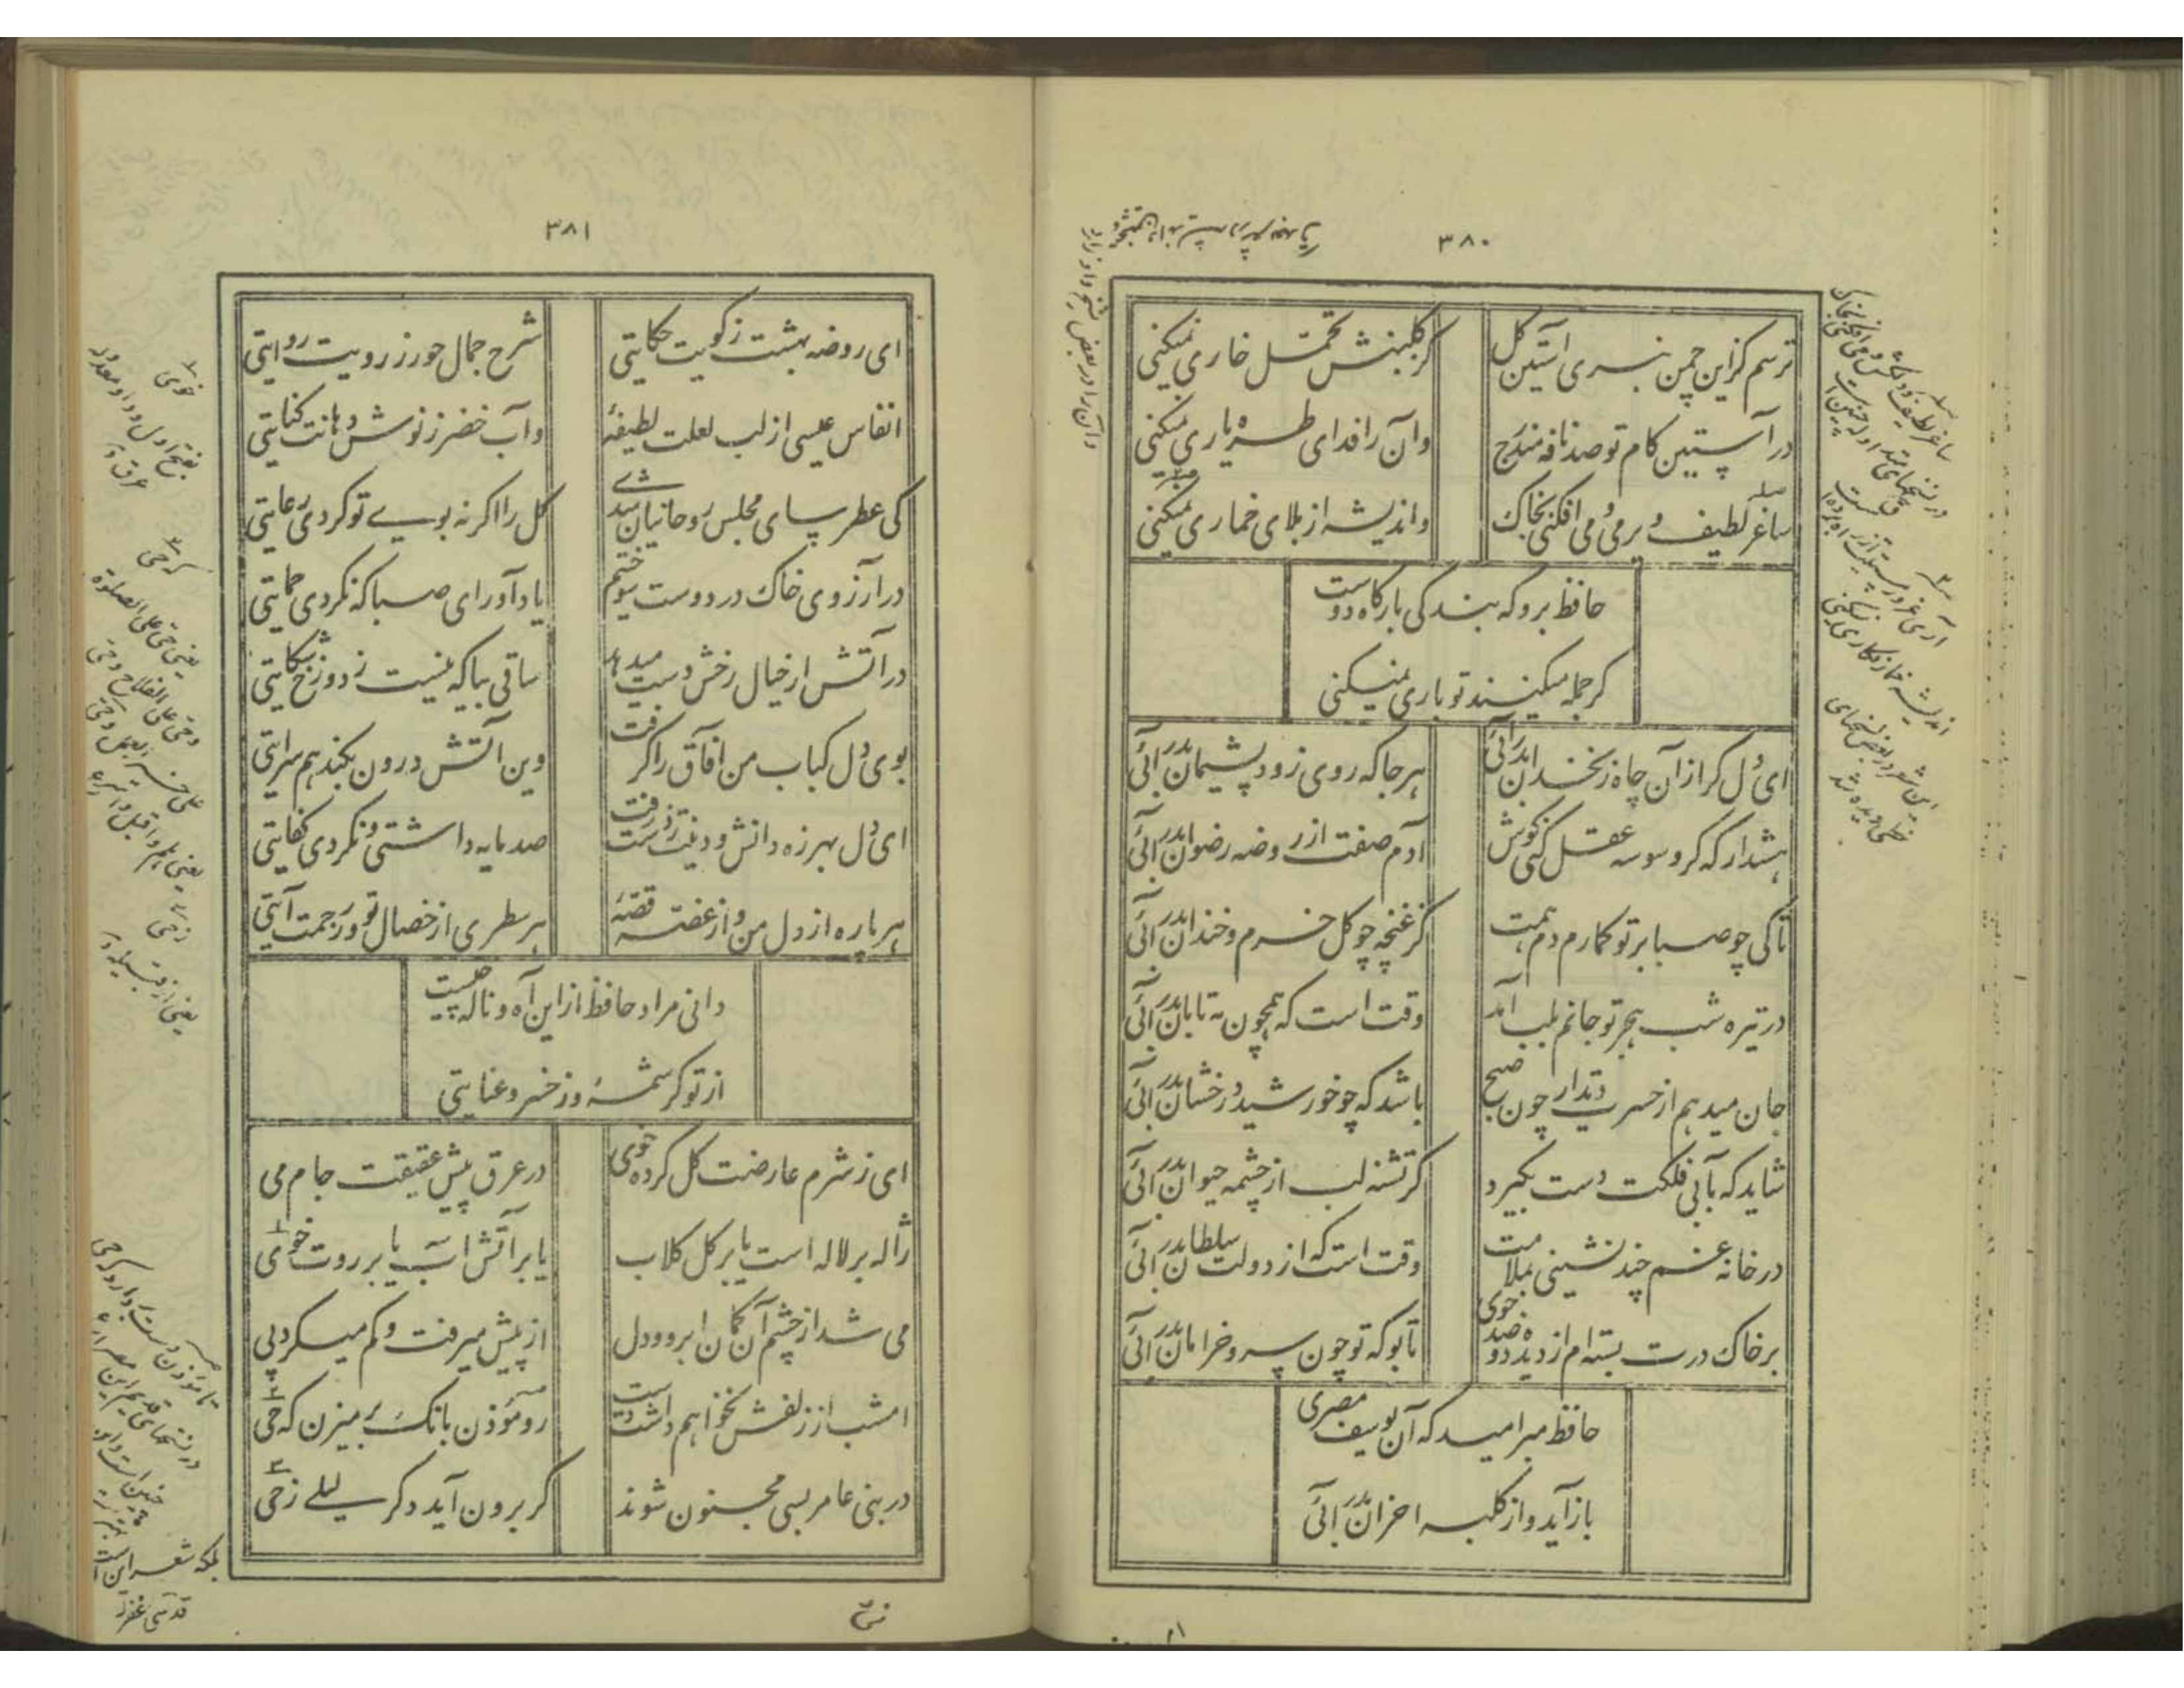 ۳۸۰
ترسم کزین چمن نبری آستین گل
کز گلبنش تحمّل خاری نمیکنی
در آستین کام تو صد نافه مندرج
وان را فدای طره یاری نمیکنی
ساغر لطیف و پر می و می افکنی بخاک
واندیشه از بلای خماری نمیکنی
حافظ برو که بندگی بارگاه دوست
گر جمله میکنند تو باری نمیکنی
ای دل گر از آن چاه زنخدان بدر آئی
هر جا که روی زود پشیمان بدر آئی
هشدار که گر وسوسه عقل کنی گوش
آدم صفت از روضه رضوان بدر آئی
تا کی چو صبا بر تو گمارم دم همت
کز غنچه چو گل خرم و خندان بدر آئی
در تیره شب هجر تو جانم بلب آمد
وقت است که همچون مه تابان بدر آئی
جان میدهم از حسرت دیدار چون صبح
باشد که چو خورشید درخشان بدر آئی
شاید که بآبی فلکت دست بگیرد
گر تشنه لب از چشمه حیوان بدر آئی
در خانه غم چند نشینی بملامت
وقت است که از دولت سلطان بدر آئی
بر خاک درت بسته ام از دیده دو صد جوی
تا بو که تو چون سرو خرامان بدر آئی
حافظ مبر امید که آن یوسف مصری
باز آید و از کلبه احزان بدر آئی
۳۸۱
ای روضه بهشت ز کویت حکایتی
شرح جمال حور ز رویت روایتی
انفاس عیسی از لب لعلت لطیفهٔ
وآب خضر ز نوش دهانت کنایتی
کی عطرسای مجلس روحانیان شدی
گل را اگر نه بوی تو کردی رعایتی
در آرزوی خاک در دوست سوختیم
یاد آور ای صبا که نکردی حمایتی
در آتش ار خیال رخش دست میدهد
ساقی بیا که نیست ز دوزخ شکایتی
بوی دل کباب من آفاق را گرفت
وین آتش درون بکند هم سرایتی
ای دل بهرزه دانش و دینت ز دست رفت
صد مایه داشتی و نکردی کفایتی
هر پاره از دل من و از غصه قصهٔ
هر سطری از خصال تو وز رحمت آیتی
دانی مراد حافظ از این آه و ناله چیست
از تو کرشمهٔ وز خسرو عنایتی
ای ز شرم عارضت گل کرده خوی
در عرق پیش عقیقت جام می
ژاله بر لاله است یا بر گل گلاب
یا بر آتش آب یا بر روت خوی
می شد از چشم آن کمان ابرو و دل
از پیش میرفت و گم میکرد پی
امشب از زلفش نخواهم داشت دست
رو مؤذن بانگ بر میزن که حی
در بنی عامر بسی مجنون شوند
گر برون آید دگر لیلی ز حی
خوی
کرحی
یعنی حی علی الصلوة
وحی علی الفلاح وحی
علی خیر العمل
زحی
یعنی از قبیله